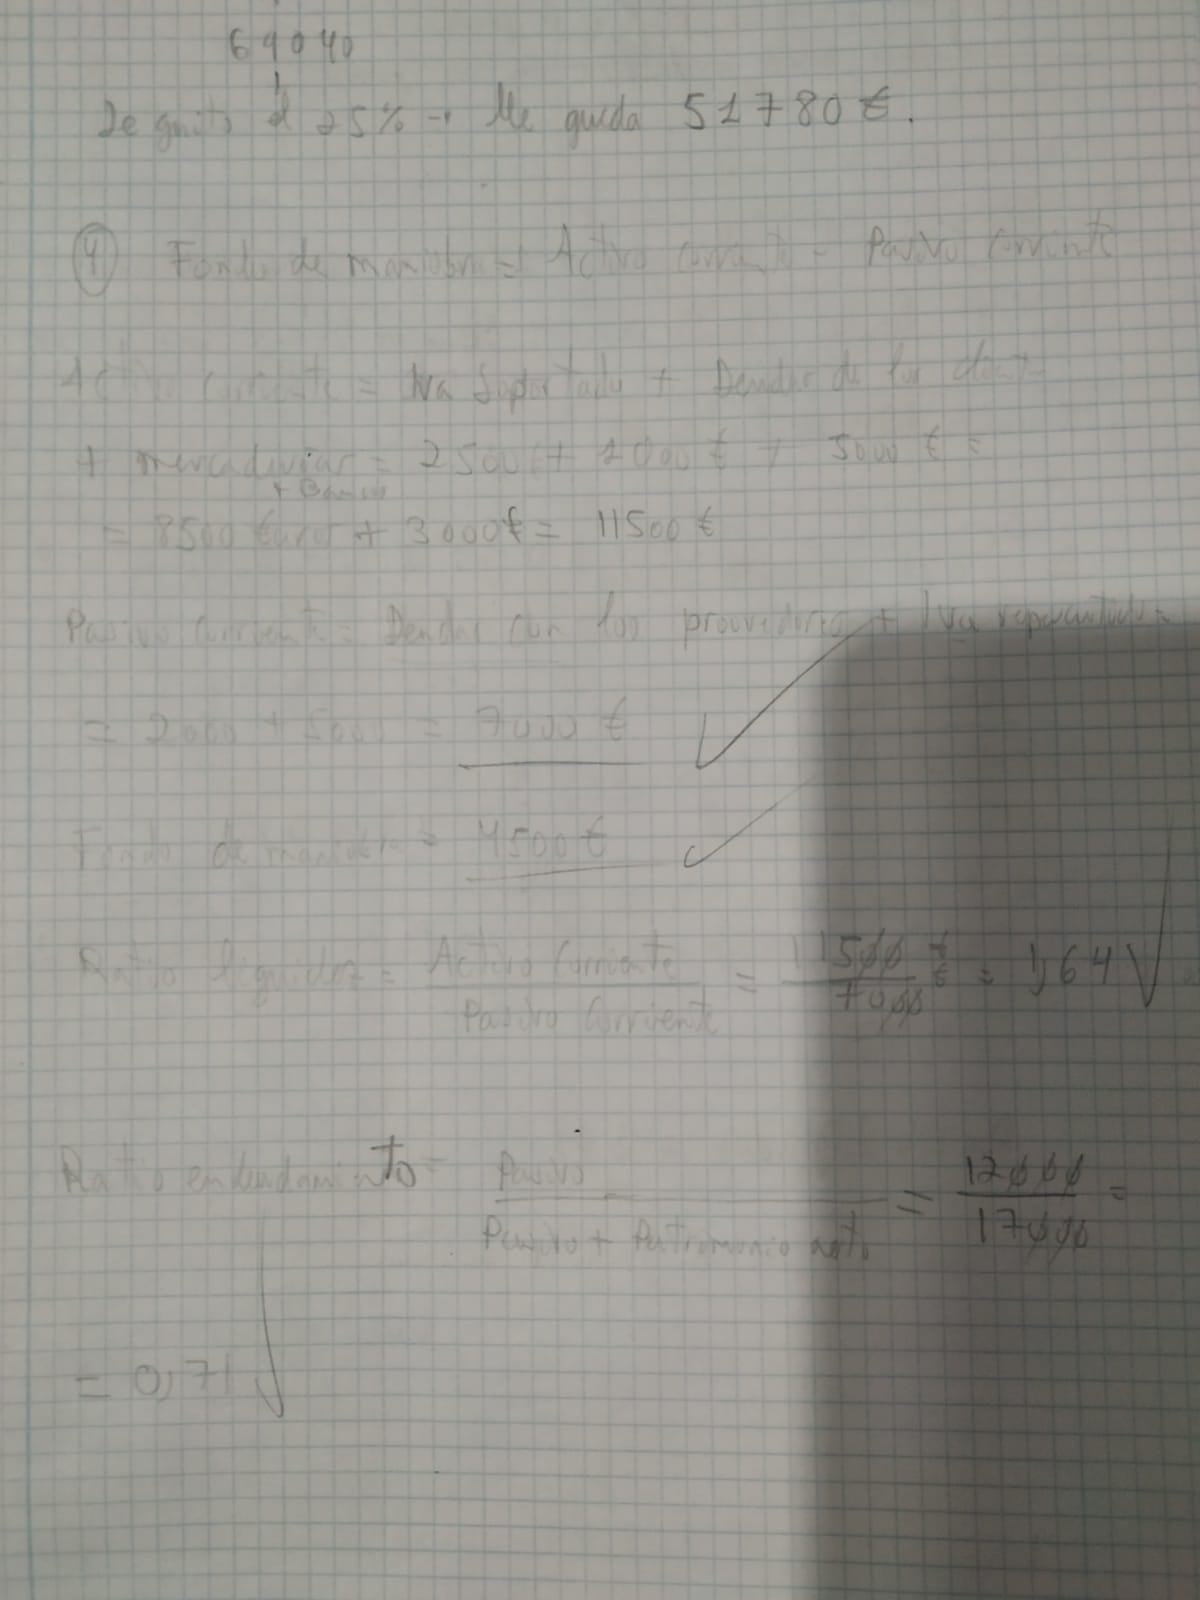 69040
Le quito el 25% → Me queda 51780€.
④ Fondo de maniobra = Activo corriente - Pasivo corriente
Activo corriente = Iva soportado + Deudas de los
+ mercaderias = 2500€ + 1000€ + 5000€ =
+ Banco
= 8500 Euros + 3000€ = 11500€
Pasivo corriente = Deudas con los proovedores + Iva repercutido =
= 2000 + 5000 = 7000€
Fondo de maniobra = 4500€
Ratio liquidez = Activo Corriente / Pasivo Corriente = 11500 € / 7000 € = 1,64
Ratio endeudamiento = Pasivo / Pasivo + Patrimonio neto = 12000 / 17000 =
= 0,71